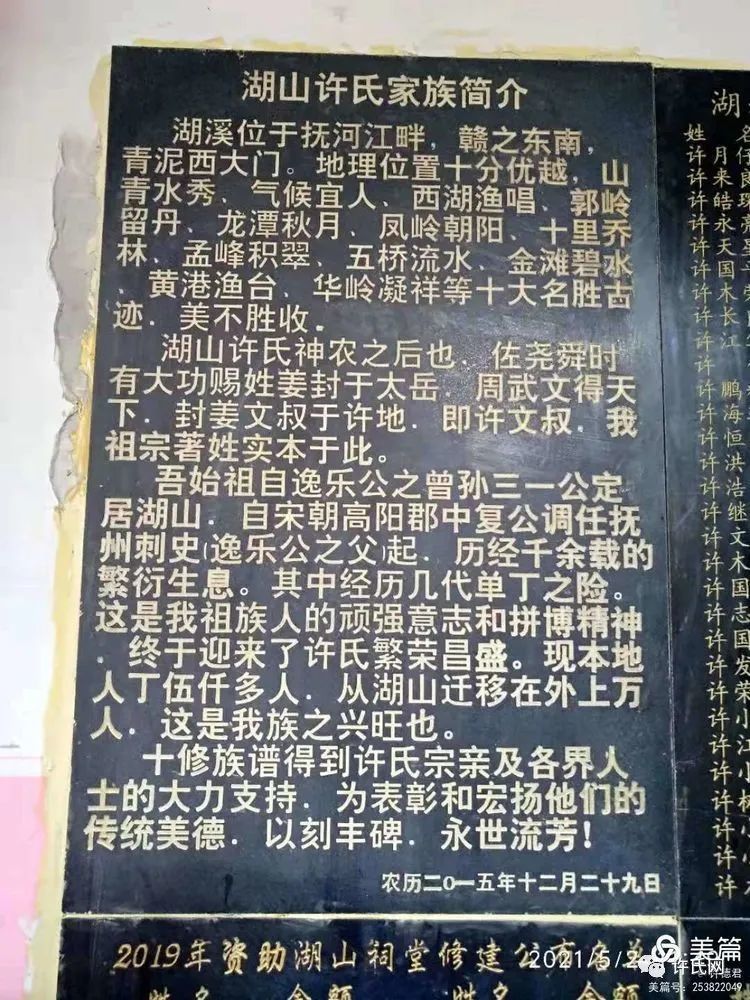 湖山许氏家族简介
湖溪位于抚河江畔，赣之东南，
青泥西大门。地理位置十分优越，山
青水秀、气候宜人、西湖渔唱、郭岭
留丹、龙潭秋月、凤岭朝阳、十里乔
林、孟峰积翠、五桥流水、金滩碧水
、黄港渔台、华岭凝祥等十大名胜古
迹．美不胜收。
湖山许氏神农之后也．佐尧舜时
有大功赐姓姜封于太岳．周武文得天
下．封姜文叔于许地．即许文叔．我
祖宗著姓实本于此。
吾始祖自逸乐公之曾孙三一公定
居湖山．自宋朝高阳郡中复公调任抚
州刺史(逸乐公之父)起．历经千余载的
繁衍生息。其中经历几代单丁之险。
这是我祖族人的顽强意志和拼博精神
．终于迎来了许氏繁荣昌盛。现本地
人丁伍仟多人．从湖山迁移在外上万
人．这是我族之兴旺也。
十修族谱得到许氏宗亲及各界人
士的大力支持．为表彰和宏扬他们的
传统美德．以刻丰碑．永世流芳！
农历二0一五年十二月二十九日
湖
姓
许月
许来
许皓
许永
许天
许国
许木
许长
许江
许
许鹏
许海
许恒
许洪
许浩
许继
许文
许木
许国
许志
许国
许发
许荣
许小
许江
许小
许
许小
许
许小
许
2019年资助湖山祠堂修建公布
姓名 金额 姓名 金额
2021/5/2
美篇
许氏网
许德君
美篇号：253822049